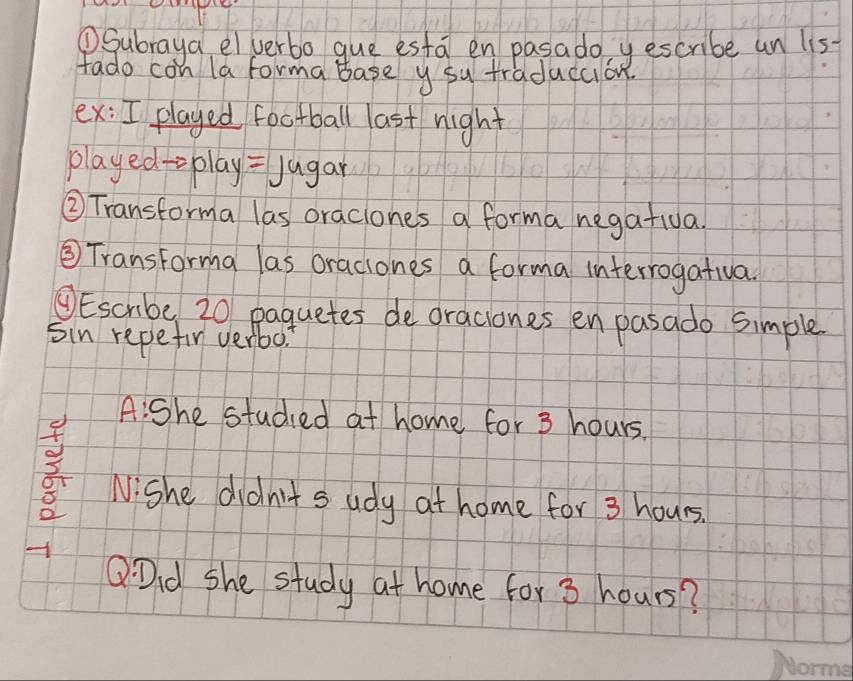 ① Subraya el verbo que está en pasado y escribe un lis-
tado con la forma base y su traducción.
ex: I played football last night
played → play = jugar
② Transforma las oraciones a forma negativa.
③ Transforma las oraciones a forma interrogativa.
④ Escribe 20 paquetes de oraciones en pasado simple
sin repetir verbo.
A: She studied at home for 3 hours.
N: She didn't s udy at home for 3 hours.
Q: Did she study at home for 3 hours?
1 paquete
Norma